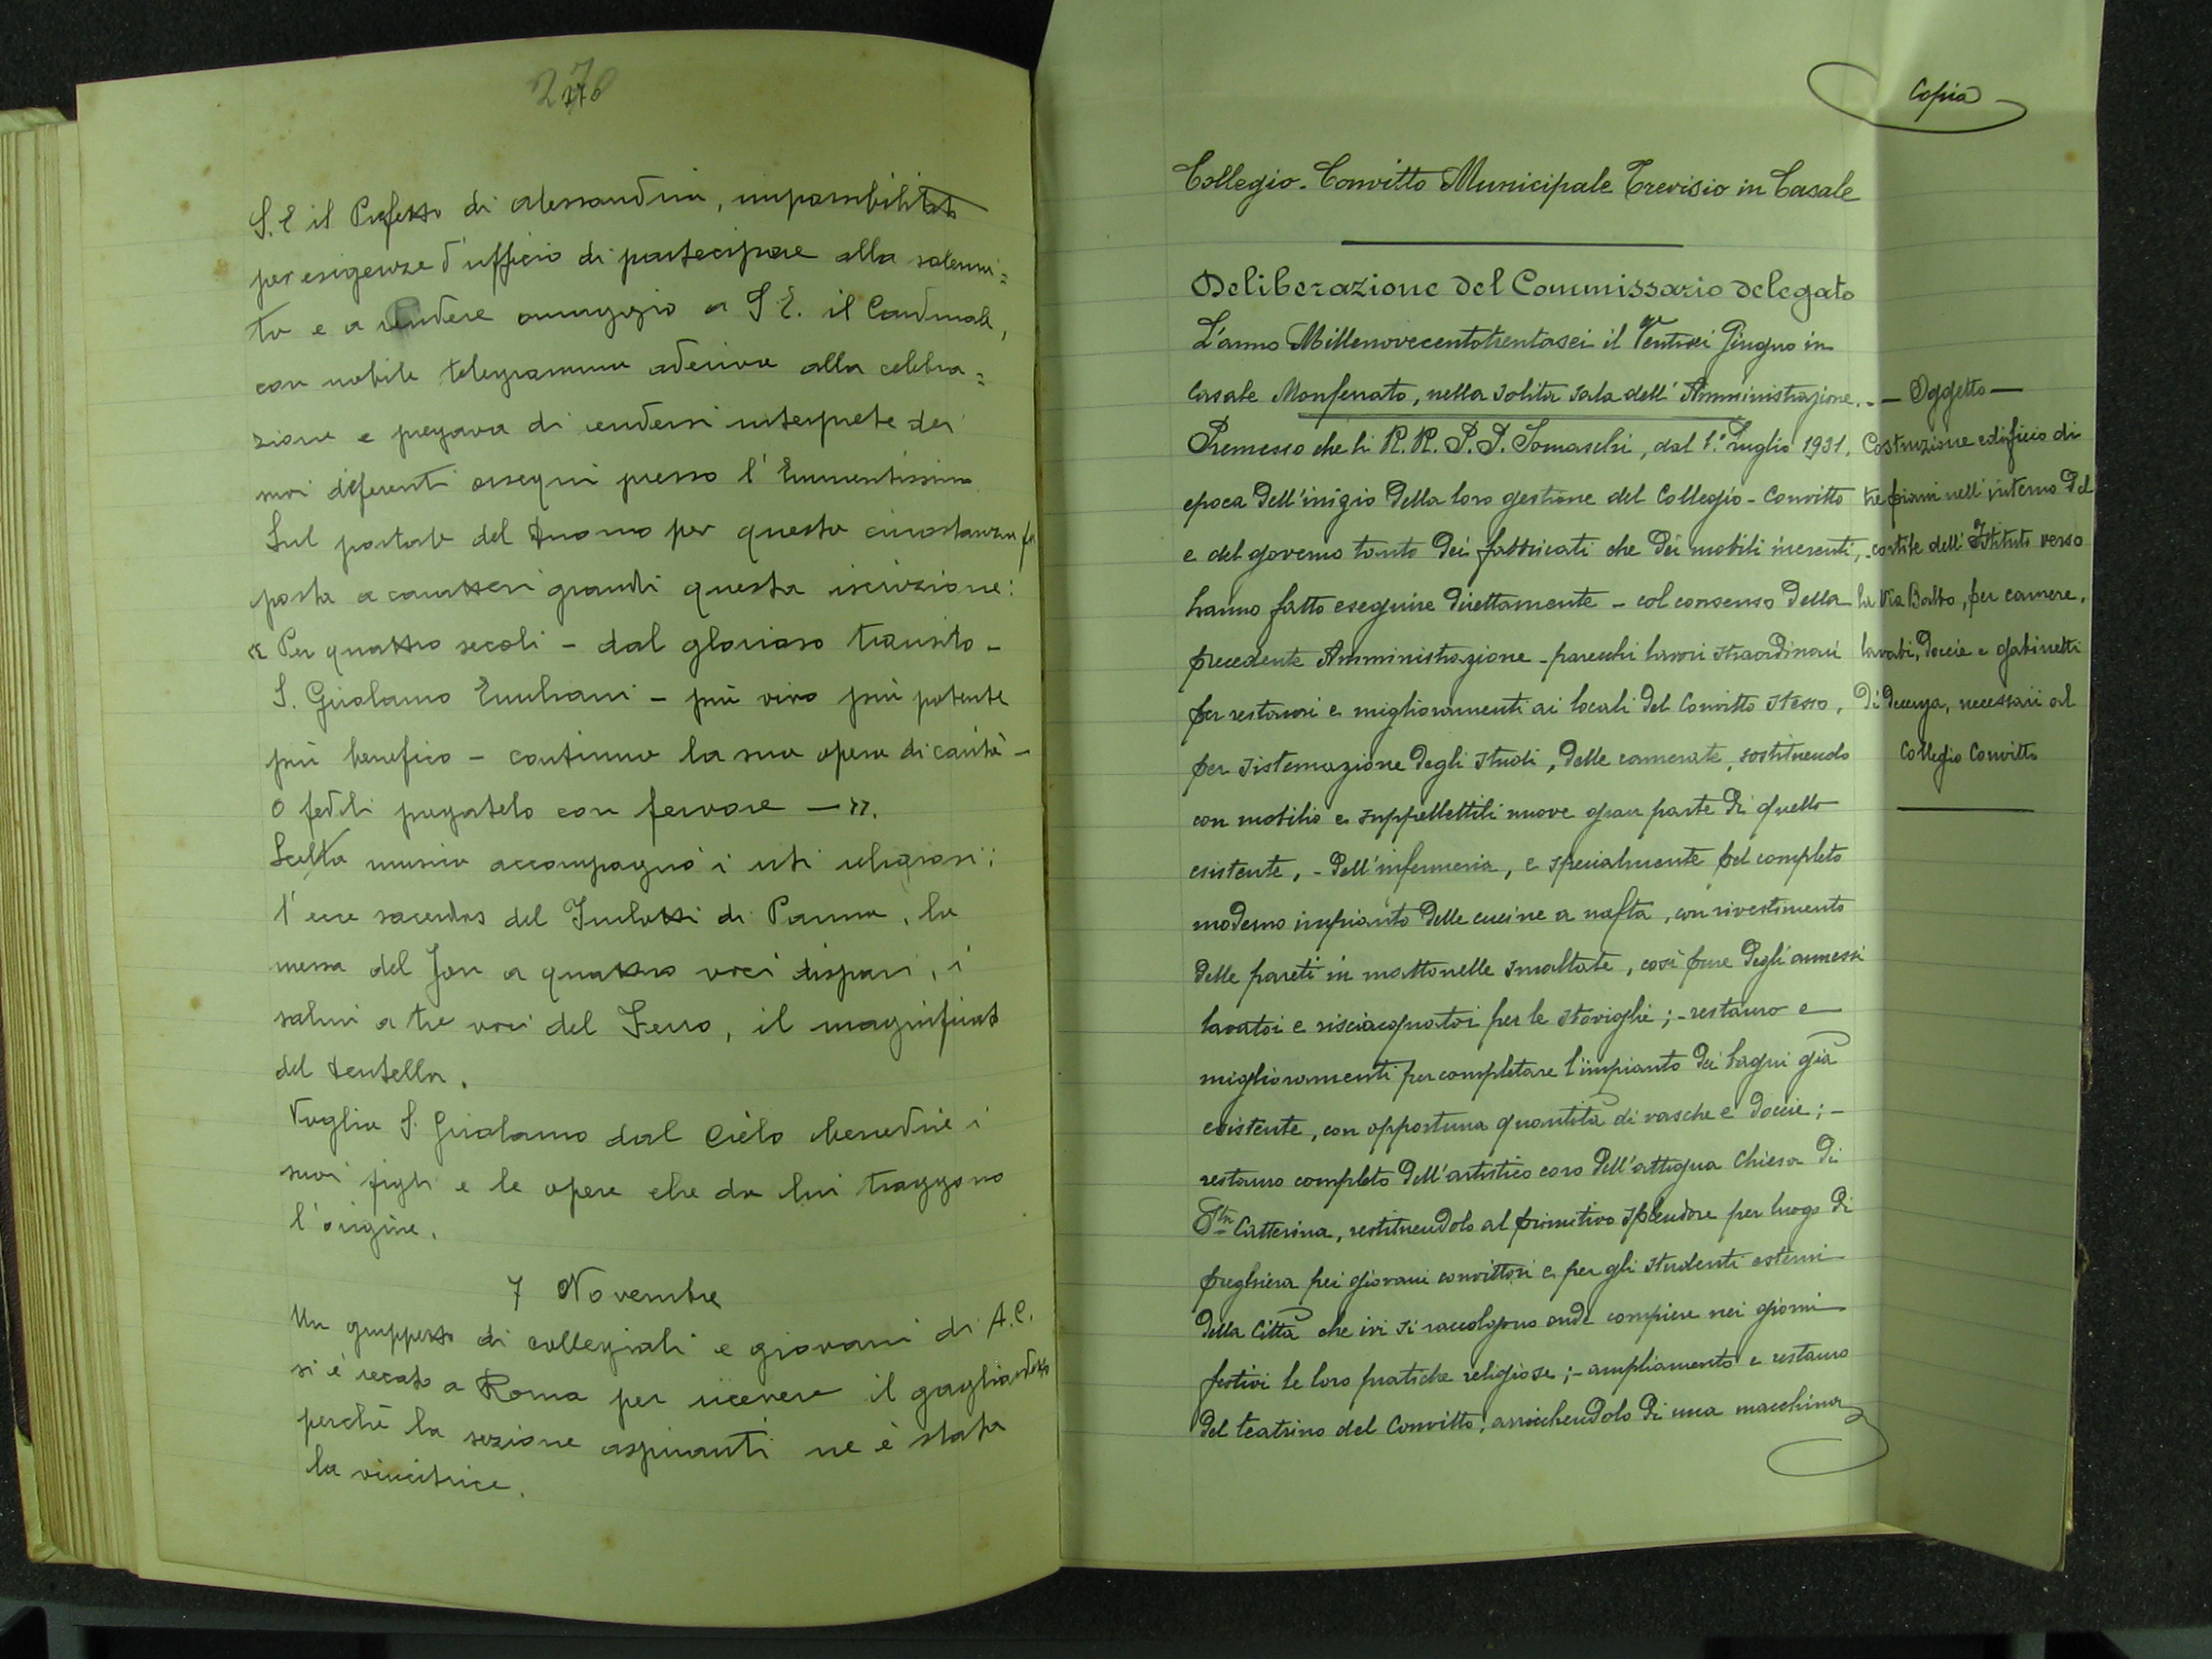 270
S. E il Prefetto di Alessandria, impossibilitato
per esigenze d'ufficio di partecipare alla solenni=
tà e a rendere omaggio a S E. il Cardinale,
con nobile telegramma aderiva alla celebra=
zione e pregava di rendersi interprete dei
suoi deferenti ossequi presso l'Eminentissimo.
Sul portale del Duomo per questa circostanza fu
posta a caratteri grandi questa iscrizione:
« Per quattro secoli - dal glorioso transito -
S. Girolamo Emiliani - più vivo più potente
più benefico - continua la sua opera di carità -
O fedeli pregatelo con fervore - ».
Scelta musica accompagnò i riti religiosi:
l'ecce sacerdos del di Parma, la
messa del a quattro voci dispari, i
salmi a tre voci del , il magnificat
del
Voglia S. Girolamo dal Cielo benedire i
suoi figli e le opere che da lui traggono
l'origine.
7 Novembre
Un gruppetto di collegiali e giovani di A.C.
si è recato a Roma per ricevere il gagliardetto
perchè la sezione aspiranti ne è stata
la vincitrice.
Copia
Collegio-Convitto Municipale Trevisio in Casale
Deliberazione del Commissario delegato
L'anno Millenovecentotrentasei il Ventisei Giugno in
Casale Monferrato, nella solita sala dell'Amministrazione. -
Premesso che li R.R. P.P. Somaschi, dal 1° Luglio 1931,
epoca dell'inizio della loro gestione del Collegio-Convitto
e del governo tanto dei fabbricati che dei mobili inerenti, -
hanno fatto eseguire direttamente - col consenso della
precedente Amministrazione - parecchi lavori straordinari
per restauri e miglioramenti ai locali del Convitto stesso,
per sistemazione degli studi, delle camerate, sostituendo
con mobilio e suppellettili nuove gran parte di quello
esistente, - dell'infermeria, e specialmente pel completo
moderno impianto delle cucine a nafta, con rivestimento
delle pareti in mattonelle smaltate, così pure degli annessi
lavatoi e risciacquatoi per le stoviglie; - restauro e
miglioramenti per completare l'impianto dei bagni già
esistente, con opportuna quantità di vasche e doccie; -
restauro completo dell'artistico coro dell'attigua Chiesa di
Sta Catterina, restituendolo al primitivo splendore per luogo di
preghiera pei giovani convittori e per gli studenti esterni
della Città che ivi si raccolgono onde compiere nei giorni
festivi le loro pratiche religiose; - ampliamento e restauro
del teatrino del Convitto, arricchendolo di una macchina
- Oggetto -
Costruzione edificio di
tre piani nell'interno del
cortile dell'Istituto verso
la Via Balbo, per camere,
lavabi, doccie e gabinetti
di decenza, necessari al
Collegio Convitto